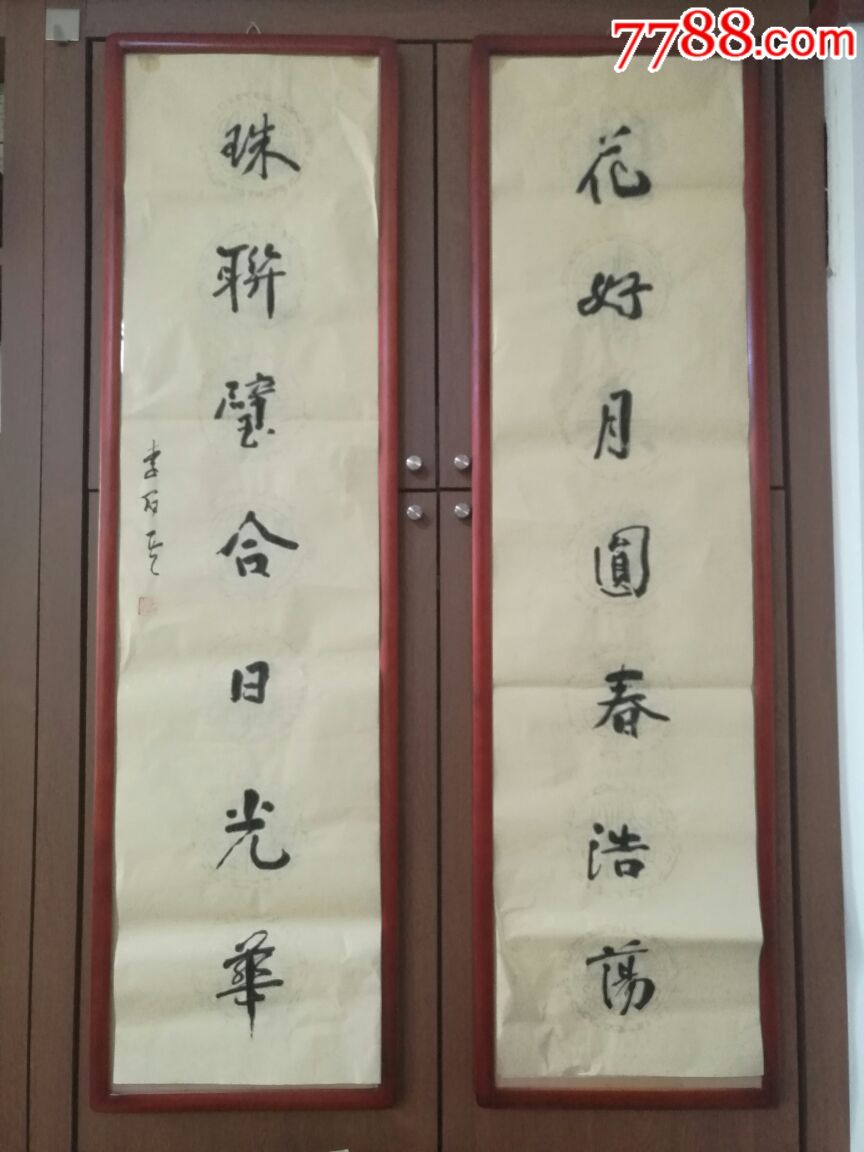 7788.com
花好月圓春浩蕩
珠聯璧合日光華